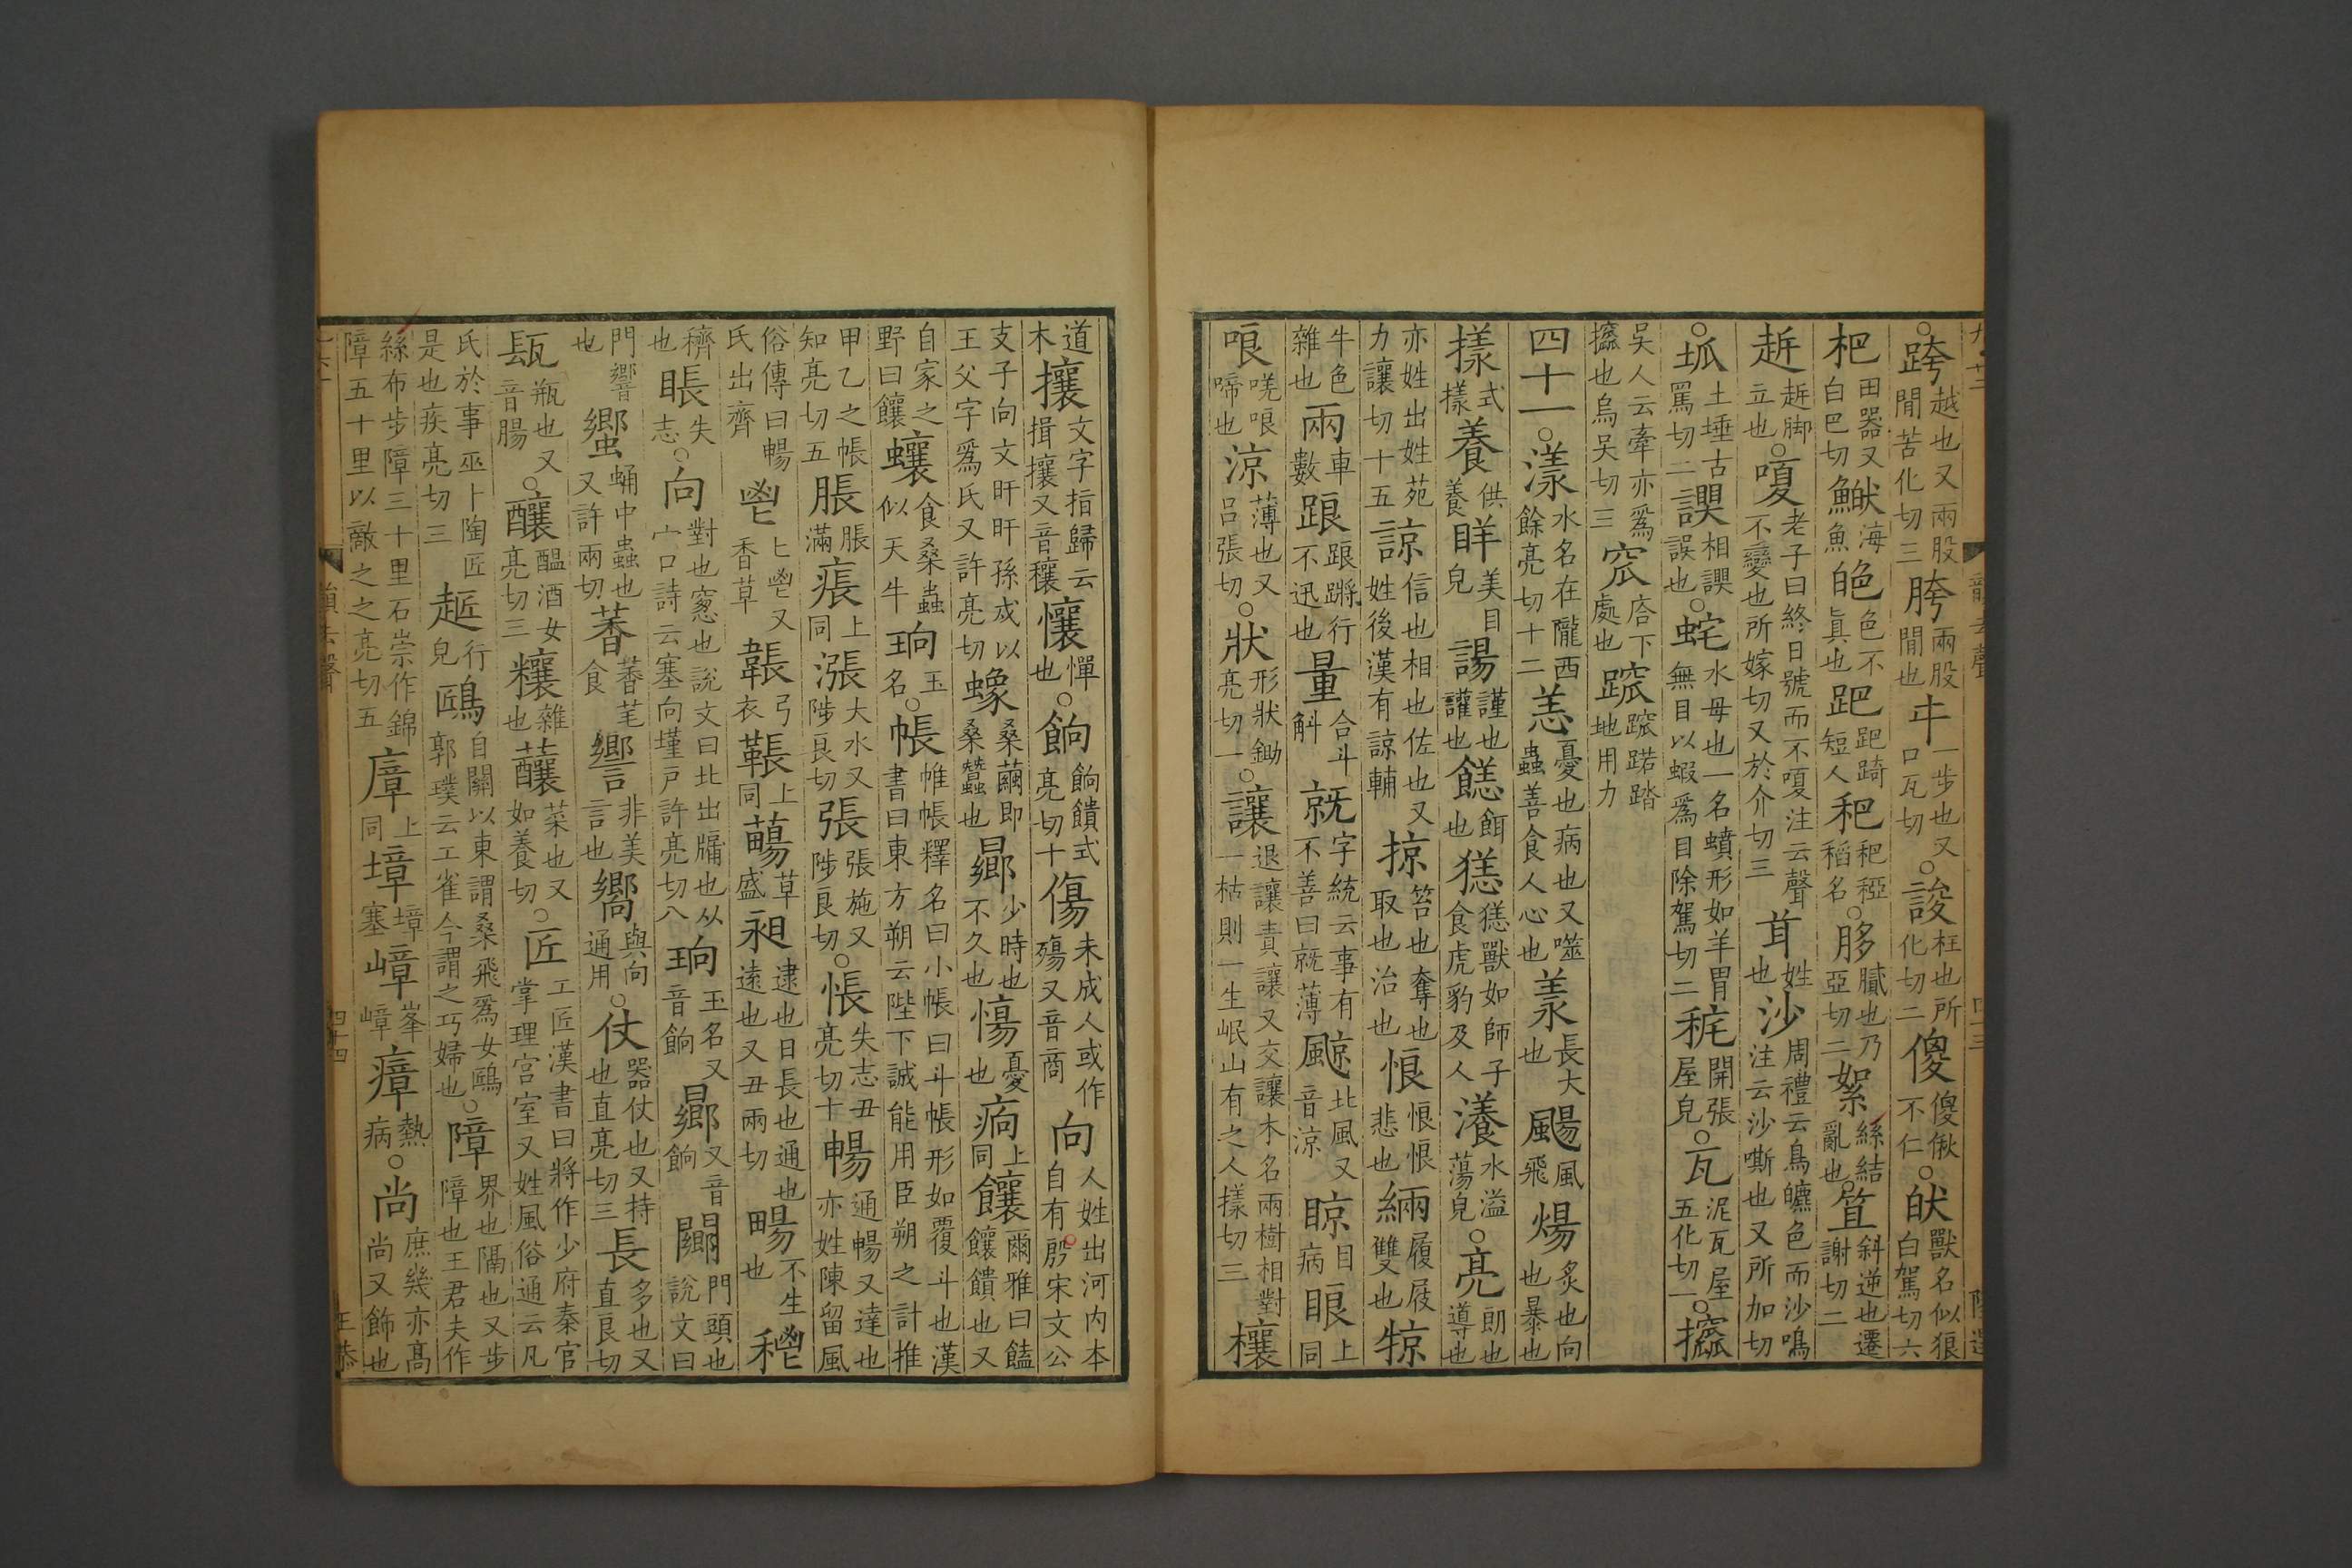 ○跨越也又兩股間苦化切三胯兩股間也㐄一步也又口瓦切○誜枉也所化切二傻傻偢不仁○𤝡獸名似狼白駕切六
杷田器又白巴切𩸀海魚皅色不真也跁跁跒短人䎱䎱䅉稻名○䏧膩也乃亞切二絮絲結亂也○笡斜逆也遷謝切二
跅跅脚立也○嗄老子曰終日號而不嗄注云聲不變也所嫁切又於介切三苴姓也沙周禮云鳥皫色而沙鳴注云沙嘶也又所加切
○坬土埵古罵切二䛩相䛩誤也○蛇水母也一名蟦形如羊胃無目以蝦爲目除駕切二秅開張屋皃○瓦泥瓦屋五化切一○攨
吴人云牽亦爲攨也烏吴切三窊㕦下處也䠚䠚踏地用力
四十一○漾水名在隴西餘亮切十二恙憂也病也又噬蟲善食人心也羕長大也颺風飛煬炙也向也暴也
樣式樣養供養眻美目皃諹讙也讙也䬺餌也㺊㺊獸如師子食虎豹及人瀁水溢蕩皃○亮朗也導也
亦姓出姓苑力讓切十五諒信也相也佐也又姓後漢有諒輔掠笞也奪也取也治也悢悢悢悲也緉履屐雙也㹁
牛色雜也兩車數踉踉蹡行不迅也量合斗斛就字統云事有不善曰就薄䬙北風又音涼晾目病眼上同
哴唴哴啼也涼薄也又吕張切○狀形狀鋤亮切一○讓退讓責讓又交讓木名兩樹相對一枯則一生岷山有之人樣切三欀
道木攘文字指歸云揖攘又音穰懹憚也○餉餉饋式亮切十傷未成人或作殤又音商向人姓出河内本自有殷宋文公
支子向文旰旰孫戍以王父字爲氏又許亮切蟓桑繭即桑蠶也曏少時也不久也慯憂也㾒上同饟爾雅曰饁饟饋也又
自家之野曰饟蠰食桑蟲似天牛珦玉名○帳帷帳釋名曰小帳曰斗帳形如覆斗也漢書曰東方朔云陛下誠能用臣朔之計推
甲乙之帳知亮切五脹脹滿痮上同漲大水又陟良切張張施又陟良切○悵失志丑亮切十暢通暢又達也亦姓陳留風
俗傳曰暢氏出齊鬯匕鬯又香草韔弓衣鞎上同䔥草盛昶逮也日長也通也遠也又丑兩切畼不生也䆍
穧也䀶失志○向對也窻也說文曰北出牖也从宀口詩云塞向墐户許亮切八珦玉名又音餉曏又音餉闀門頭也說文曰
門響也蠁蛹中蟲也又許兩切薌薌芼食響非美言也嚮與向通用○仗器仗也又持也直亮切三長多也又直良切
瓺瓶也又音腸○釀醖酒女亮切三糷雜也蘸菜也又如養切○匠工匠漢書曰將作少府秦官掌理宫室又姓風俗通云凡
氏於事巫卜陶匠是也疾亮切三䞪行皃鴎自關以東謂桑飛爲女鴎郭璞云工雀今謂之巧婦也○障界也隔也又步障也王君夫作
絲布步障三十里石崇作錦障五十里以敵之之亮切五㢓上同墇墇塞嶂峯嶂瘴熱病○尚庶幾亦高尚又飾也